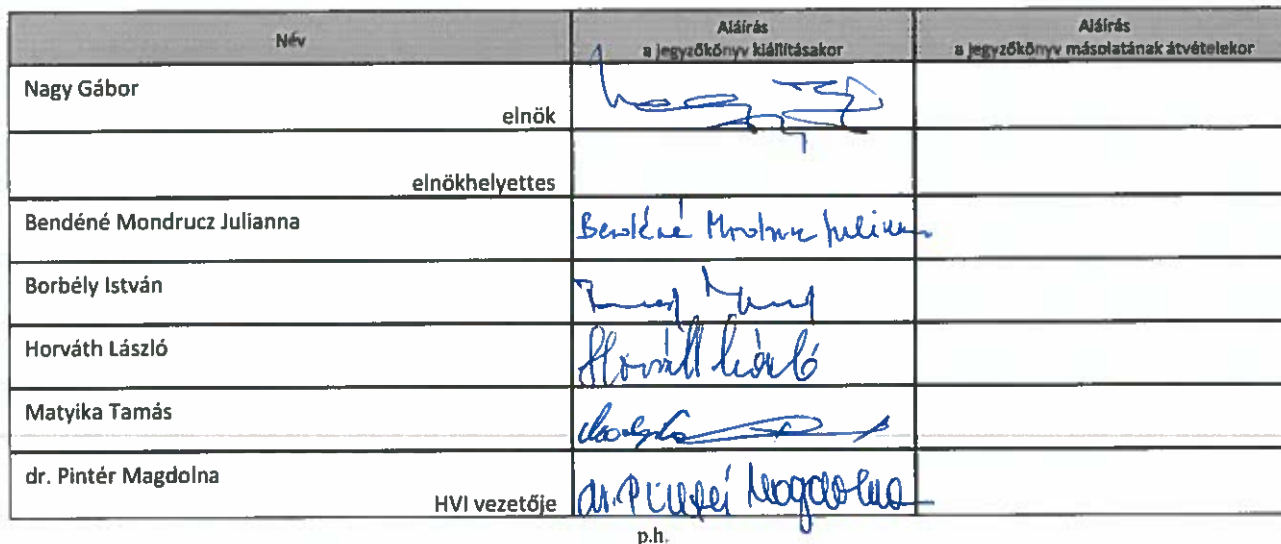 Név
Aláírás
a jegyzőkönyv kiállításakor
Aláírás
a jegyzőkönyv másolatának átvételekor
Nagy Gábor
elnök
elnökhelyettes
Bendéné Mondrucz Julianna
Bendéné Mondrucz Julianna
Borbély István
Horváth László
Horváth László
Matyika Tamás
dr. Pintér Magdolna
HVI vezetője
dr. Pintér Magdolna
p.h.